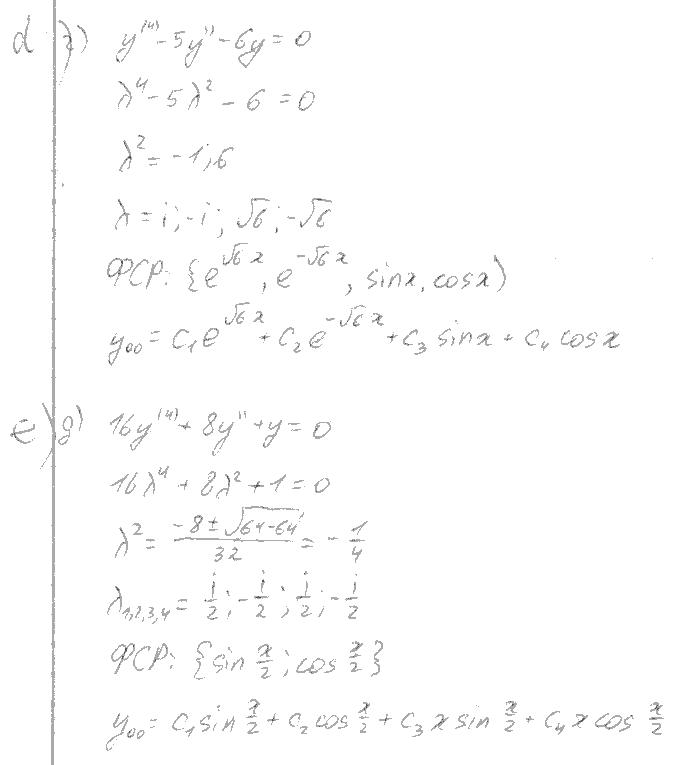 d г) y⁽⁴⁾ - 5y'' - 6y = 0
λ⁴ - 5λ² - 6 = 0
λ² = -1; 6
λ = i; -i; √6; -√6
ФСР: {e^(√6x), e^(-√6x), sinx, cosx}
y₀₀ = C₁e^(√6x) + C₂e^(-√6x) + C₃ sinx + C₄ cosx
e) g) 16y⁽⁴⁾ + 8y'' + y = 0
16λ⁴ + 8λ² + 1 = 0
λ² = (-8 ± √(64-64))/32 = -1/4
λ₁,₂,₃,₄ = i/2; -i/2; i/2; -i/2
ФСР: {sin x/2; cos x/2}
y₀₀ = C₁ sin x/2 + C₂ cos x/2 + C₃ x sin x/2 + C₄ x cos x/2